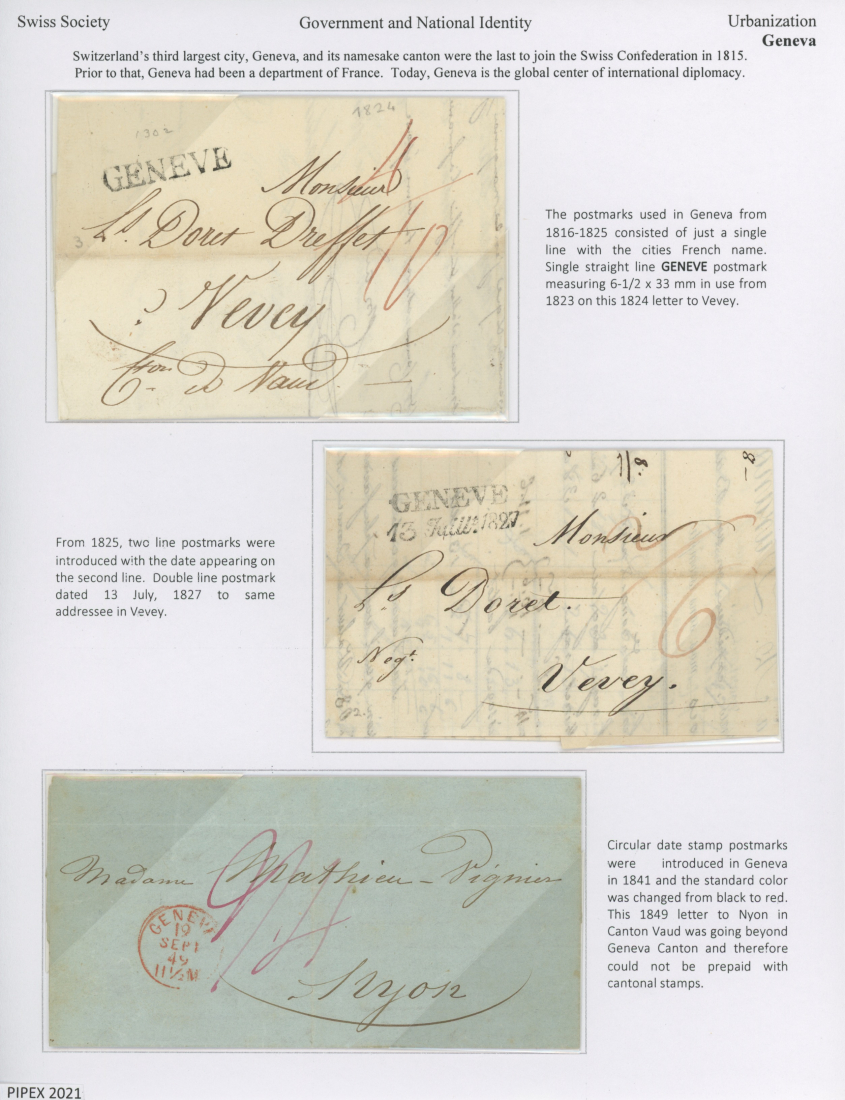 Swiss Society Government and National Identity Urbanization
Geneva
Switzerland's third largest city, Geneva, and its namesake canton were the last to join the Swiss Confederation in 1815.
Prior to that, Geneva had been a department of France. Today, Geneva is the global center of international diplomacy.
1824
1302
GENEVE
Monsieur
3
Ls. Doret Dreffet
Vevey
Cton. D Vaud
The postmarks used in Geneva from
1816-1825 consisted of just a single
line with the cities French name.
Single straight line GENEVE postmark
measuring 6-1/2 x 33 mm in use from
1823 on this 1824 letter to Vevey.
From 1825, two line postmarks were
introduced with the date appearing on
the second line. Double line postmark
dated 13 July, 1827 to same
addressee in Vevey.
GENEVE
13 Juill. 1827
Monsieur
Ls Doret.
Negt.
Vevey.
Madame Mathieu - Vignier
GENEV
19
SEPT
49
11½M
Nyon
Circular date stamp postmarks
were introduced in Geneva
in 1841 and the standard color
was changed from black to red.
This 1849 letter to Nyon in
Canton Vaud was going beyond
Geneva Canton and therefore
could not be prepaid with
cantonal stamps.
PIPEX 2021